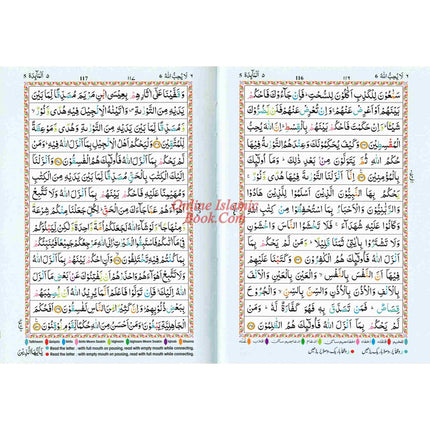 المآئدة ٥
116
لا يحب الله ٦
سَمّٰعُوْنَ لِلْكَذِبِ اَكّٰلُوْنَ لِلسُّحْتِ فَاِنْ جَآءُوْكَ فَاحْكُمْ
بَيْنَهُمْ اَوْ اَعْرِضْ عَنْهُمْ وَاِنْ تُعْرِضْ عَنْهُمْ فَلَنْ يَّضُرُّوْكَ
شَيْـًٔا وَاِنْ حَكَمْتَ فَاحْكُمْ بَيْنَهُمْ بِالْقِسْطِ اِنَّ اللّٰهَ يُحِبُّ
الْمُقْسِطِيْنَ وَكَيْفَ يُحَكِّمُوْنَكَ وَعِنْدَهُمُ التَّوْرٰىةُ فِيْهَا
حُكْمُ اللّٰهِ ثُمَّ يَتَوَلَّوْنَ مِنْۢ بَعْدِ ذٰلِكَ وَمَآ اُولٰٓئِكَ
بِالْمُؤْمِنِيْنَ اِنَّآ اَنْزَلْنَا التَّوْرٰىةَ فِيْهَا هُدًى وَّنُوْرٌ
يَحْكُمُ بِهَا النَّبِيُّوْنَ الَّذِيْنَ اَسْلَمُوْا لِلَّذِيْنَ هَادُوْا
وَالرَّبّٰنِيُّوْنَ وَالْاَحْبَارُ بِمَا اسْتُحْفِظُوْا مِنْ كِتٰبِ اللّٰهِ
وَكَانُوْا عَلَيْهِ شُهَدَآءَ فَلَا تَخْشَوُا النَّاسَ وَاخْشَوْنِ
وَلَا تَشْتَرُوْا بِاٰيٰتِيْ ثَمَنًا قَلِيْلًا وَمَنْ لَّمْ يَحْكُمْ
بِمَآ اَنْزَلَ اللّٰهُ فَاُولٰٓئِكَ هُمُ الْكٰفِرُوْنَ وَكَتَبْنَا عَلَيْهِمْ
فِيْهَآ اَنَّ النَّفْسَ بِالنَّفْسِ وَالْعَيْنَ بِالْعَيْنِ وَالْاَنْفَ
بِالْاَنْفِ وَالْاُذُنَ بِالْاُذُنِ وَالسِّنَّ بِالسِّنِّ وَالْجُرُوْحَ
قِصَاصٌ فَمَنْ تَصَدَّقَ بِهٖ فَهُوَ كَفَّارَةٌ لَّهٗ وَمَنْ لَّمْ يَحْكُمْ
بِمَآ اَنْزَلَ اللّٰهُ فَاُولٰٓئِكَ هُمُ الظّٰلِمُوْنَ
المآئدة ٥
117
لا يحب الله ٦
وَقَفَّيْنَا عَلٰٓى اٰثَارِهِمْ بِعِيْسَى ابْنِ مَرْيَمَ مُصَدِّقًا لِّمَا بَيْنَ
يَدَيْهِ مِنَ التَّوْرٰىةِ وَاٰتَيْنٰهُ الْاِنْجِيْلَ فِيْهِ هُدًى وَّنُوْرٌ
وَّمُصَدِّقًا لِّمَا بَيْنَ يَدَيْهِ مِنَ التَّوْرٰىةِ وَهُدًى وَّمَوْعِظَةً
لِّلْمُتَّقِيْنَ وَلْيَحْكُمْ اَهْلُ الْاِنْجِيْلِ بِمَآ اَنْزَلَ اللّٰهُ فِيْهِ وَمَنْ
لَّمْ يَحْكُمْ بِمَآ اَنْزَلَ اللّٰهُ فَاُولٰٓئِكَ هُمُ الْفٰسِقُوْنَ وَاَنْزَلْنَآ
اِلَيْكَ الْكِتٰبَ بِالْحَقِّ مُصَدِّقًا لِّمَا بَيْنَ يَدَيْهِ مِنَ الْكِتٰبِ
وَمُهَيْمِنًا عَلَيْهِ فَاحْكُمْ بَيْنَهُمْ بِمَآ اَنْزَلَ اللّٰهُ وَلَا تَتَّبِعْ
اَهْوَآءَهُمْ عَمَّا جَآءَكَ مِنَ الْحَقِّ لِكُلٍّ جَعَلْنَا مِنْكُمْ شِرْعَةً
وَّمِنْهَاجًا وَلَوْ شَآءَ اللّٰهُ لَجَعَلَكُمْ اُمَّةً وَّاحِدَةً وَّلٰكِنْ
لِّيَبْلُوَكُمْ فِيْ مَآ اٰتٰىكُمْ فَاسْتَبِقُوا الْخَيْرٰتِ اِلَى اللّٰهِ مَرْجِعُكُمْ جَمِيْعًا فَيُنَبِّئُكُمْ
بِمَا كُنْتُمْ فِيْهِ تَخْتَلِفُوْنَ وَاَنِ احْكُمْ بَيْنَهُمْ بِمَآ اَنْزَلَ اللّٰهُ
وَلَا تَتَّبِعْ اَهْوَآءَهُمْ وَاحْذَرْهُمْ اَنْ يَّفْتِنُوْكَ عَنْۢ بَعْضِ مَآ اَنْزَلَ
اللّٰهُ اِلَيْكَ فَاِنْ تَوَلَّوْا فَاعْلَمْ اَنَّمَا يُرِيْدُ اللّٰهُ اَنْ يُّصِيْبَهُمْ
بِبَعْضِ ذُنُوْبِهِمْ وَاِنَّ كَثِيْرًا مِّنَ النَّاسِ لَفٰسِقُوْنَ اَفَحُكْمَ
الْجَاهِلِيَّةِ يَبْغُوْنَ وَمَنْ اَحْسَنُ مِنَ اللّٰهِ حُكْمًا لِّقَوْمٍ يُّوْقِنُوْنَ
يٰٓاَيُّهَا الَّذِيْنَ
Online Islamic
Book.Com